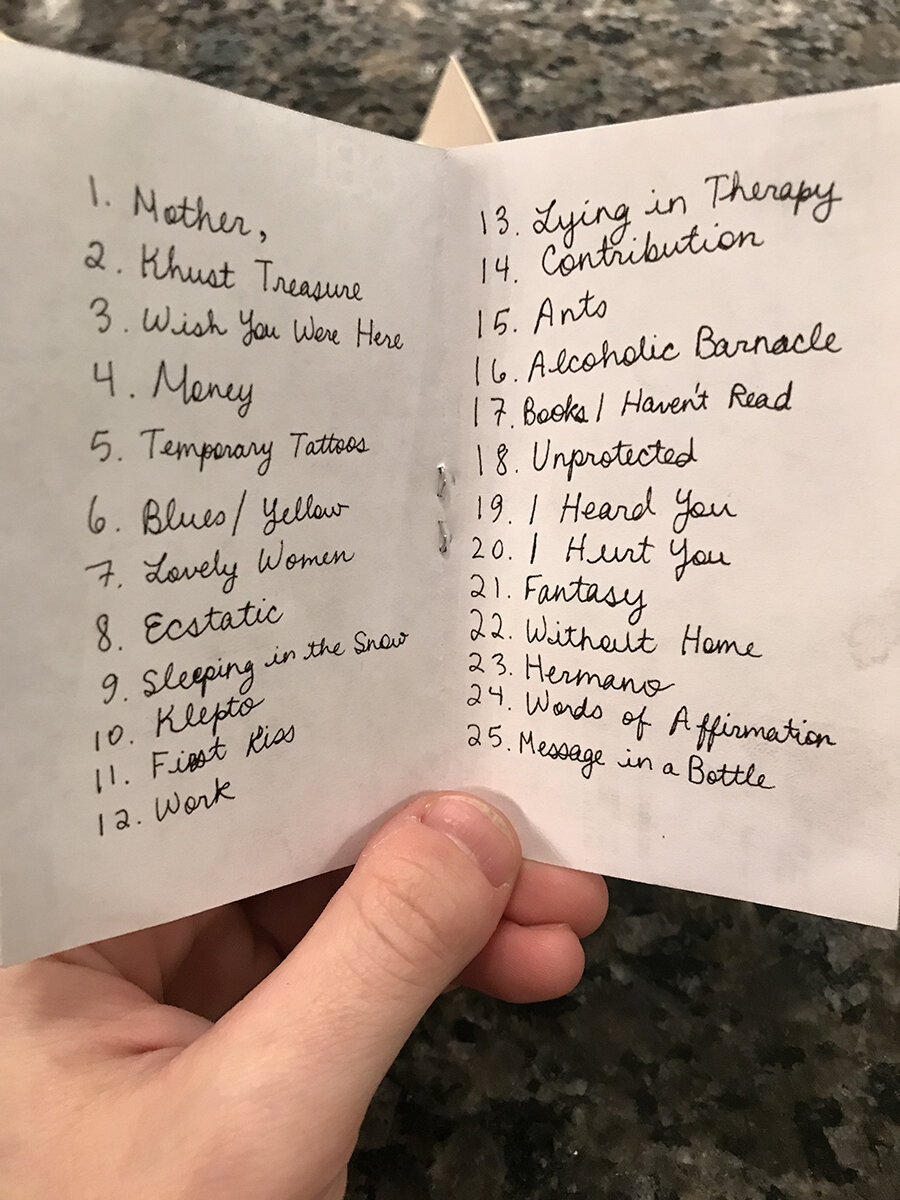 1. Mother,
2. Khust Treasure
3. Wish You Were Here
4. Money
5. Temporary Tattoos
6. Blues/Yellow
7. Lovely Women
8. Ecstatic
9. Sleeping in the Snow
10. Klepto
11. First Kiss
12. Work
13. Lying in Therapy
14. Contribution
15. Ants
16. Alcoholic Barnacle
17. Books I Haven't Read
18. Unprotected
19. I Heard You
20. I Hurt You
21. Fantasy
22. Without Home
23. Hermano
24. Words of Affirmation
25. Message in a Bottle